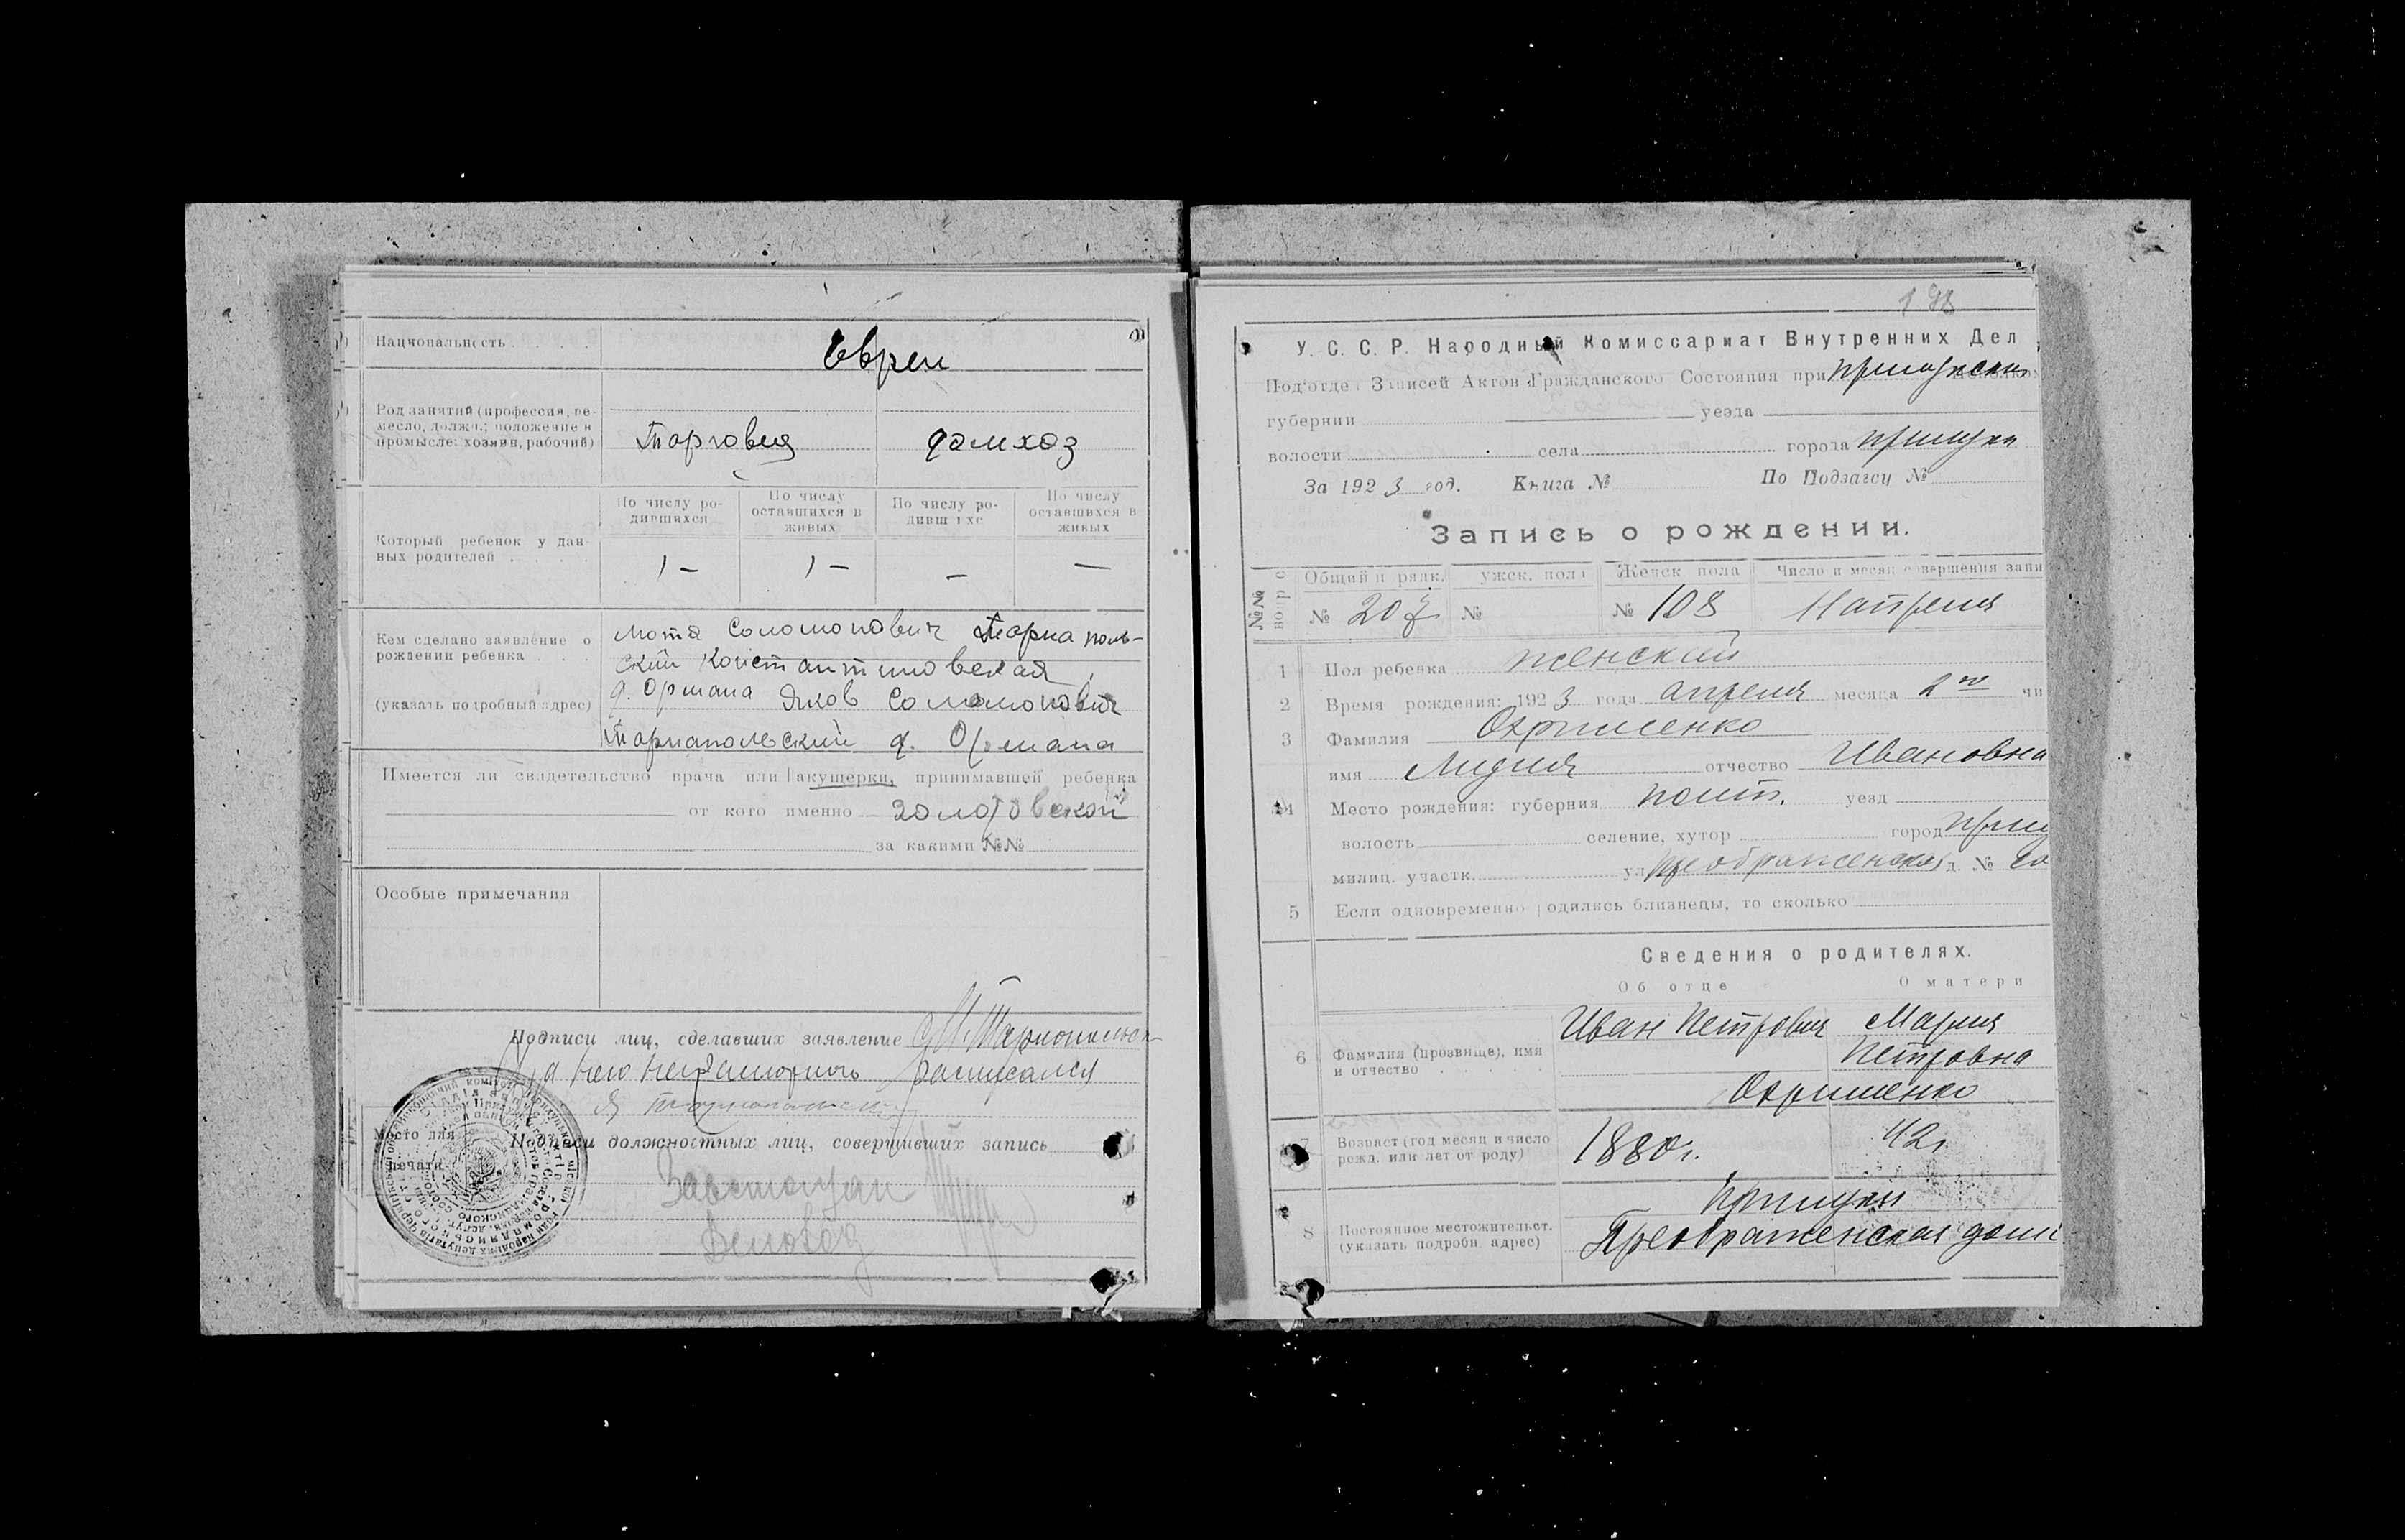 Национальность
Евреи
Род занятий (профессия, ре-
месло, должн.; положение в
промысле: хозяин, рабочий)
Торговля
домхоз
Который ребенок у дан-
ных родителей
По числу ро-
дившихся
По числу
оставшихся в
живых
По числу ро-
дивш хс
По числу
оставшихся в
живых
1 –
1 –
–
–
Кем сделано заявление о
рождении ребенка
(указать подробный адрес)
Мотя Соломонович Тарнаполь-
ский Константиновская
д. Ормана Яков Соломонович
Тарнапольский д. Ормана
Имеется ли свидетельство врача или акушерки, принимавшей ребенка
от кого именно Золотовской
за какими №№
Особые примечания
Подписи лиц, сделавших заявление М. Тарнопольск
расписался
Место для
печати
Подписи должностных лиц, совершивших запись
Деловод
198
У. С. С. Р. Народный Комиссариат Внутренних Дел
Подотдел Записей Актов Гражданского Состояния при Прилукском
губернии уезда
волости села города Прилуки
За 1923 год. Книга № По Подзагсу №
Запись о рождении.
№№
вопрос
Общий порядк.
ужск. пола
Женск пола
Число и месяц совершения запи
№ 207
№
№ 108
11 апреля
1 Пол ребенка женский
2 Время рождения: 1923 года апреля месяца 2го чи
3 Фамилия Охрименко
имя Лидия отчество Ивановна
4 Место рождения: губерния Полт. уезд
волость селение, хутор город Прилу
милиц. участк. ул Преображенская д. № со
5 Если одновременно родились близнецы, то сколько
Сведения о родителях.
Об отце
О матери
6 Фамилия (прозвище), имя
и отчество
Иван Петрович
Мария
Петровна
Охрименко
7 Возраст (год месяц и число
рожд. или лет от роду)
1880 г.
42 г.
8 Постоянное местожительст.
(указать подробн. адрес)
Прилуки
Преображенская дом